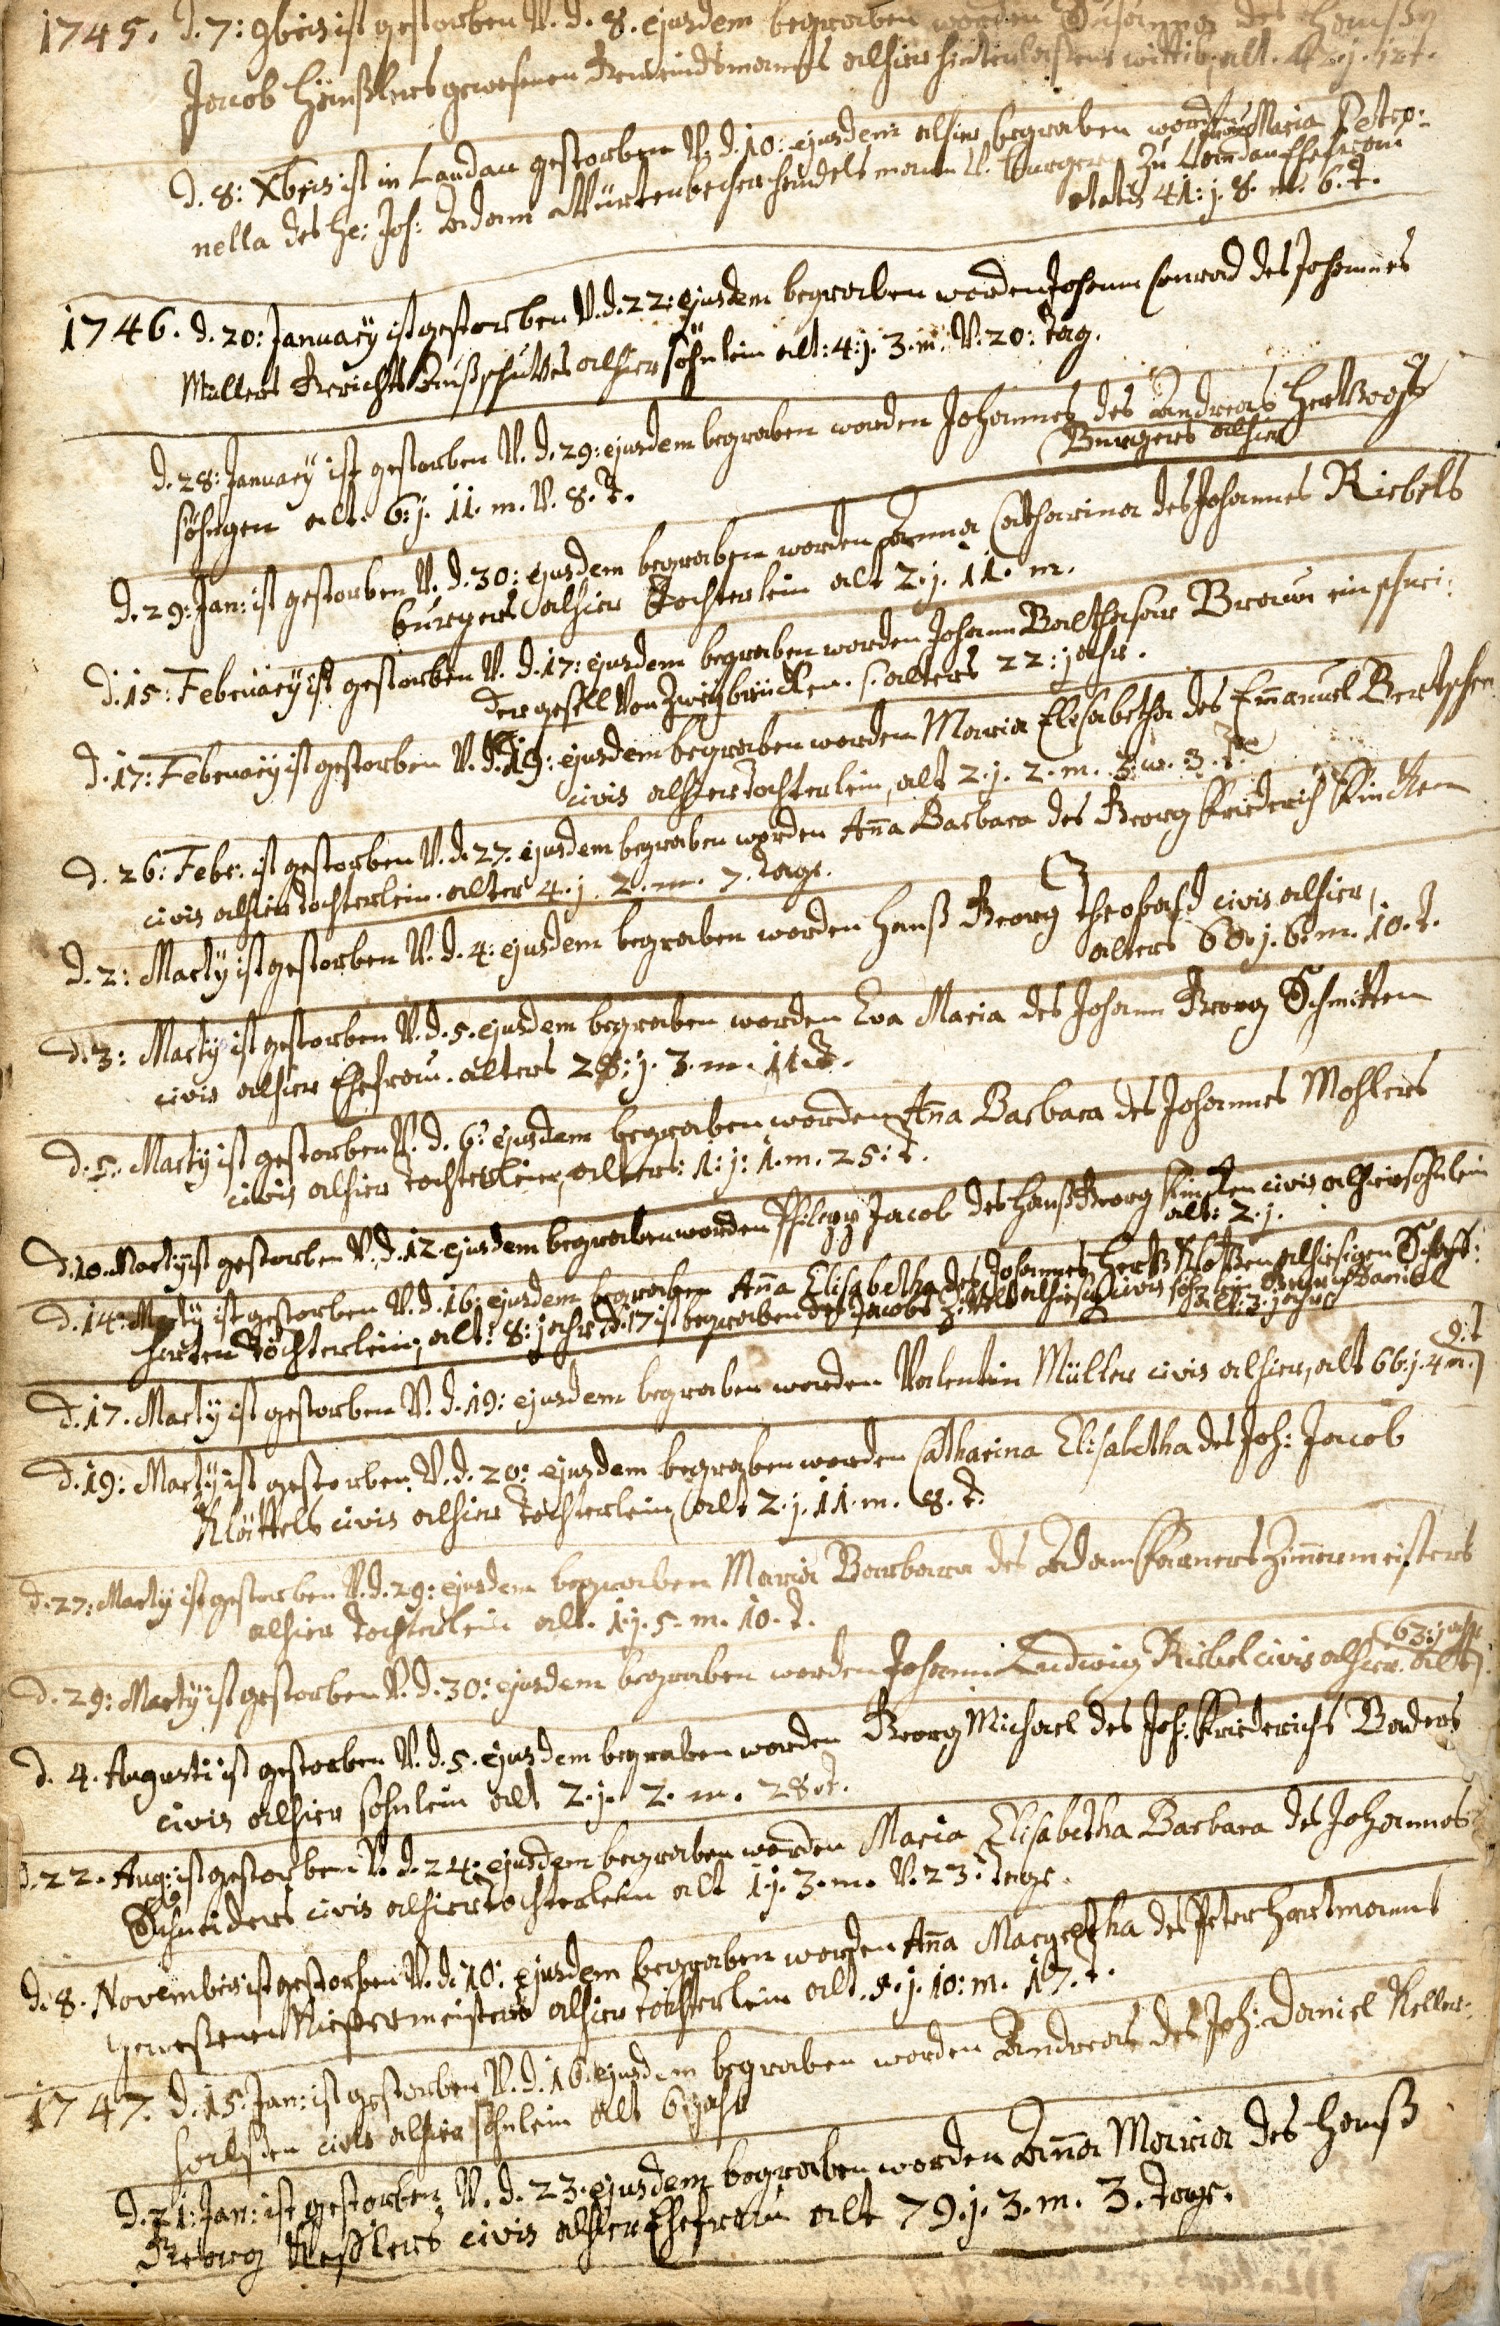 1745. d. 7: 9bris ist gestorben V. d. 8. ejusdem begraben worden Susanna des Hanß
Jacob gewesenen Gemeindsmanns alhier hinterlassene wittib, alt.
d. 8: Xbris ist in Landau gestorben V. d. 10: ejusdem alhier begraben worden Maria Petro:
nella des He: Joh: Adam Würtenbecher handelsmann V. burger zu Landau Ehefrau
ætatis 41: j. 8. m. 6. t.
1746. d. 20: January ist gestorben V. d. 22: ejusdem begraben worden Johann Conrad des Johannes
Müllers Gerichts alhier söhnlein alt: 4: j. 3. m. V. 20: Tag.
d. 28: January ist gestorben V. d. 29: ejusdem begraben worden Johannes des Andreas
Burgers alhier
söhngen alt. 6: j. 11. m. V. 8. t.
d. 29: Jan: ist gestorben V. d. 30: ejusdem begraben worden Anna Catharina des Johannes Riebels
burgers alhier Töchterlein alt 2. j. 11. m.
d. 15: February ist gestorben V. d. 17: ejusdem begraben worden Johann Balthasar Braun ein schnei:
der gesell Von Zweybrücken. s. alters 22: jahr.
d. 17: February ist gestorben V. d. 19: ejusdem begraben worden Maria Elisabetha des Em̄anuel Bertschen
civis alhier töchterlein, alt 2. j. 2. m. 3. w. 3. t.
d. 26: Febr. ist gestorben V. d. 27. ejusdem begraben worden An̄a Barbara des Georg Friederich Fincken
civis alhier töchterlein. alter 4. j. 2. m. 7. tage.
d. 2: Marty ist gestorben V. d. 4: ejusdem begraben worden Hanß Georg Theobald civis alhier,
alters 60. j. 6. m. 10. t.
d. 3: Marty ist gestorben V. d. 5. ejusdem begraben worden Eva Maria des Johann Georg Schmitten
civis alhier Ehefrau. alters 28: j. 3. m. 11. t.
d. 5. Marty ist gestorben V. d. 6: ejusdem begraben worden An̄a Barbara des Johannes Mohlers
civis alhier töchterlein, alters: 1: j: 1. m. 25: t.
d. 10. Marty ist gestorben V. d. 12 ejusdem begraben worden Philipp Jacob des Hanß Georg Fincken civis alhier söhnlein
alt: 2. j.
d. 14: Marty ist gestorben V. d. 16: ejusdem begraben An̄a Elisabetha des Johannes alhiesigen Schaff:
hirten töchterlein, alt: 8: jahr d. 17 ist begraben des Jacobs alhiesig civis söhnlein Daniel
alt: 3. jahr
d. 17. Marty ist gestorben V. d. 19: ejusdem begraben worden Valentin Müller civis alhier, alt 66. j. 4 m.
9. t
d. 19: Marty ist gestorben V. d. 20: ejusdem begraben worden Catharina Elisabetha des Joh: Jacob
Klättels civis alhier töchterlein, alt 2. j. 11. m. 8. t.
d. 27: Marty ist gestorben V. d. 29: ejusdem begraben Maria Barbara des Adam Zim̄ermeisters
alhier töchterlein alt. 1. j. 5. m. 10. t.
d. 29: Marty ist gestorben V. d. 30: ejusdem begraben worden Johann Ludwig Riebel civis alhier. alt
63: jahr
d. 4. Augusti ist gestorben V. d. 5. ejusdem begraben worden Georg Michael des Joh: Friederichs Baders
civis alhier söhnlein alt 2. j. 2. m. 28. t.
d. 22. Aug: ist gestorben V. d. 24: ejusdem begraben worden Maria Elisabetha Barbara des Johannes
Schneiders civis alhier töchterlein alt 1. j. 3. m. V. 23. tage.
d. 8. Novembris ist gestorben V. d. 10: ejusdem begraben worden An̄a Margretha des Peter Hartmanns
geweßenen Kieffermeisters alhier töchterlein alt. j. 10: m. 17. t.
1747. d. 15. Jan: ist gestorben V. d. 16. ejusdem begraben worden Andreas des Joh: Daniel Keller:
halsden civis alhier söhnlein alt 6 jahr
d. 21: Jan: ist gestorben V. d. 23. ejusdem begraben worden An̄a Maria des Hanß
Georg Keßlers civis alhier Ehefrau alt 79. j. 3. m. 3. tage.